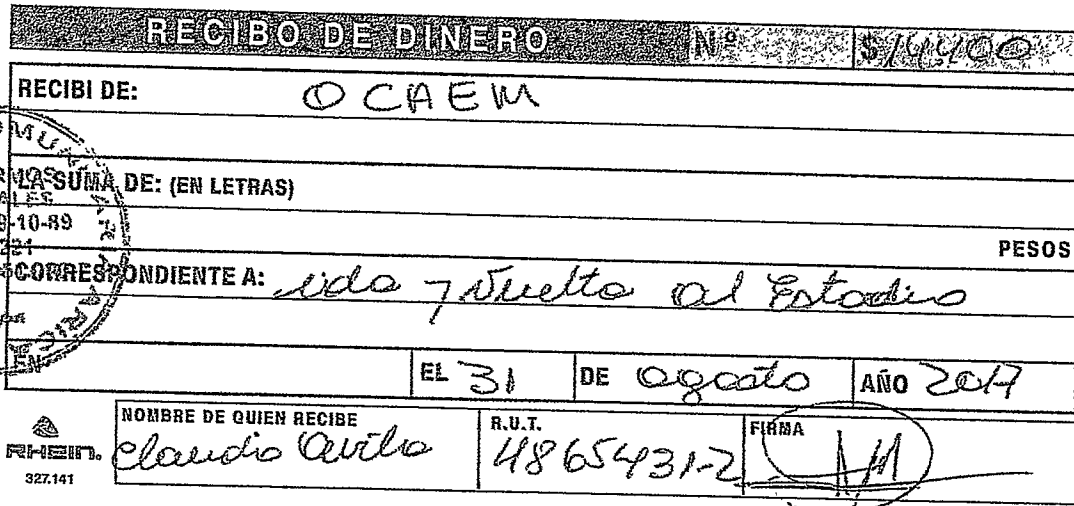 RECIBO DE DINERO Nº $14400
RECIBI DE: OCAEM
LA SUMA DE: (EN LETRAS)
9-10-89
PESOS
CORRESPONDIENTE A: ida y Vuelta al Estadio
EN
EL 31 DE agosto AÑO 2017
NOMBRE DE QUIEN RECIBE R.U.T. FIRMA
Claudio Avila 4865431-2
RHEIN.
327.141